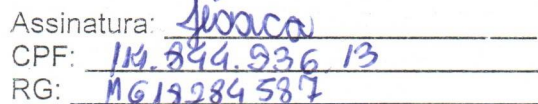 Assinatura: Jessica
CPF: 114.844.936/13
RG: MG19284587